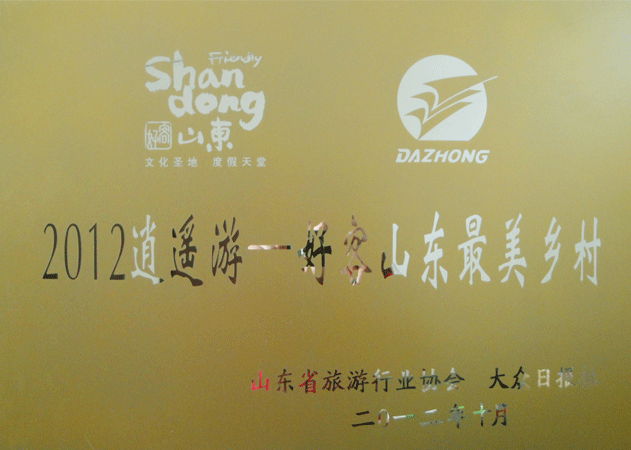 Friendly
Shan
dong
好客 山東
文化圣地 度假天堂
DAZHONG
2012逍遥游一好客山东最美乡村
山东省旅游行业协会 大众日报
二〇一二年十月